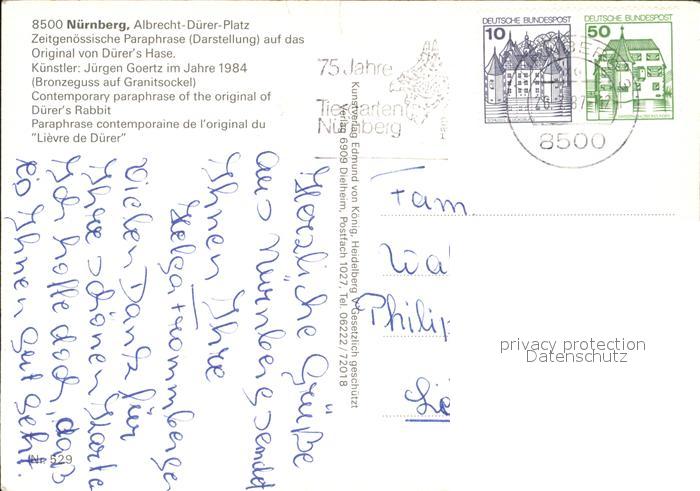 8500 Nürnberg, Albrecht-Dürer-Platz
Zeitgenössische Paraphrase (Darstellung) auf das
Original von Dürer's Hase.
Künstler: Jürgen Goertz im Jahre 1984
(Bronzeguss auf Granitsockel)
Contemporary paraphrase of the original of
Dürer's Rabbit
Paraphrase contemporaine de l'original du
"Lièvre de Dürer"
75 Jahre
Tiergarten
Nürnberg
10 DEUTSCHE BUNDESPOST
50 DEUTSCHE BUNDESPOST
8500
Kunstverlag Edmund von König, Heidelberg · Gesetzlich geschützt
Verlag 6909 Dielheim, Postfach 1027, Tel. 06222/72018
Herzliche Grüße
aus Nürnberg sendet
Ihnen Ihre
Helga Trommberger
Vielen Dank für
Ihre schönen Karte
Ich hoffe doch, daß
es Ihnen gut geht.
Fam
Wa
Philip
Nr. 529
privacy protection
Datenschutz